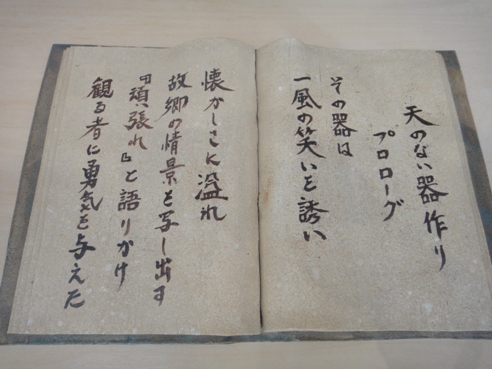 天のない器作り
プロローグ
その器は
一風の笑いを誘い
懐かしさに溢れ
故郷の情景を写し出す
『頑張れ』と語りかけ
観る者に勇気を与えた